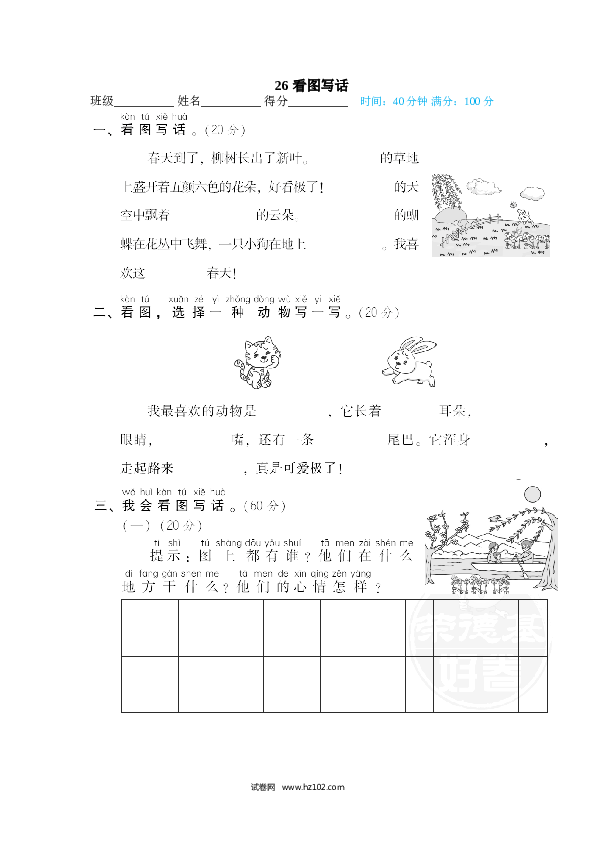 26 看图写话
班级 姓名 得分 时间：40分钟 满分：100分
kàn tú xiě huà
一、看图写话。(20分)
春天到了，柳树长出了新叶。 的草地
上盛开着五颜六色的花朵，好看极了！ 的天
空中飘着 的云朵。 的蝴
蝶在花丛中飞舞，一只小狗在地上 。我喜
欢这 春天！
kàn tú xuǎn zé yì zhǒng dòng wù xiě yì xiě
二、看图，选择一种动物写一写。(20分)
我最喜欢的动物是 ，它长着 耳朵，
眼睛， 嘴，还有一条 尾巴。它浑身 ，
走起路来 ，真是可爱极了！
wǒ huì kàn tú xiě huà
三、我会看图写话。(60分)
(一)(20分)
tí shì tú shàng dōu yǒu shuí tā men zài shén me
提示：图上都有谁？他们在什么
dì fang gàn shén me tā men de xīn qíng zěn yàng
地方干什么？他们的心情怎样？
荣德基
好卷
试卷网 www.hz102.com